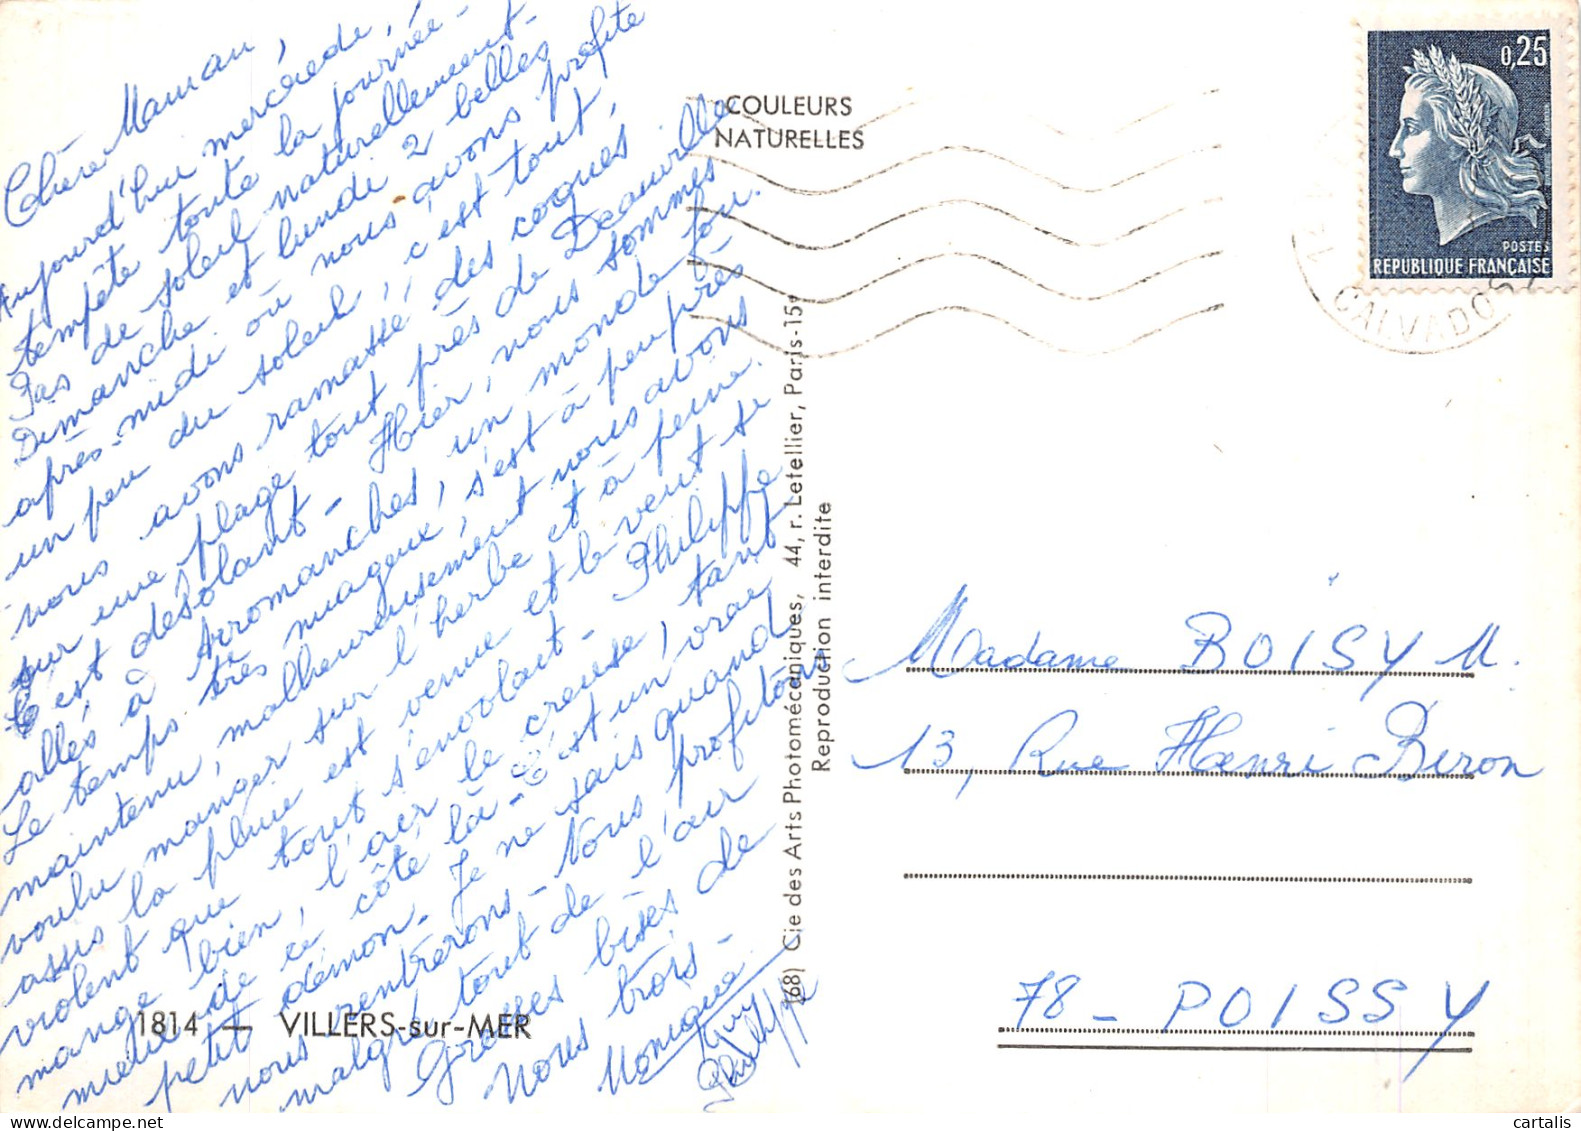 Chère Maman,
Aujourd'hui mercredi,
tempête toute la journée -
Pas de soleil naturellement -
Dimanche et lundi 2 belles
après-midi où nous avons profité
un peu du soleil, c'est tout,
nous avons ramassé des coques
sur une plage tout près de Deauville
C'est désolant - Hier, nous sommes
allés à Arromanches, un monde fou.
Le temps très nuageux, s'est à peu près
maintenu, malheureusement nous avons
voulu manger sur l'herbe et à peine
assis la pluie est venue et le vent si
violent que tout s'envolait - Philippe
mange bien, l'air le creuse, tant
mieux de ce côté là - C'est un vrai
petit démon. Je ne sais quand
nous rentrerons - Nous profitons
malgré tout de l'air
Grosses bises de
Nous trois -
Monique
Guy
Philippe
1814 — VILLERS-sur-MER
COULEURS
NATURELLES
(68) Cie des Arts Photomécaniques, 44, r. Letellier, Paris-15e
Reproduction interdite
0,25
POSTES
RÉPUBLIQUE FRANÇAISE
CALVADOS
Madame BOISY M.
13, Rue Henri Biron
78 - POISSY
cartalis